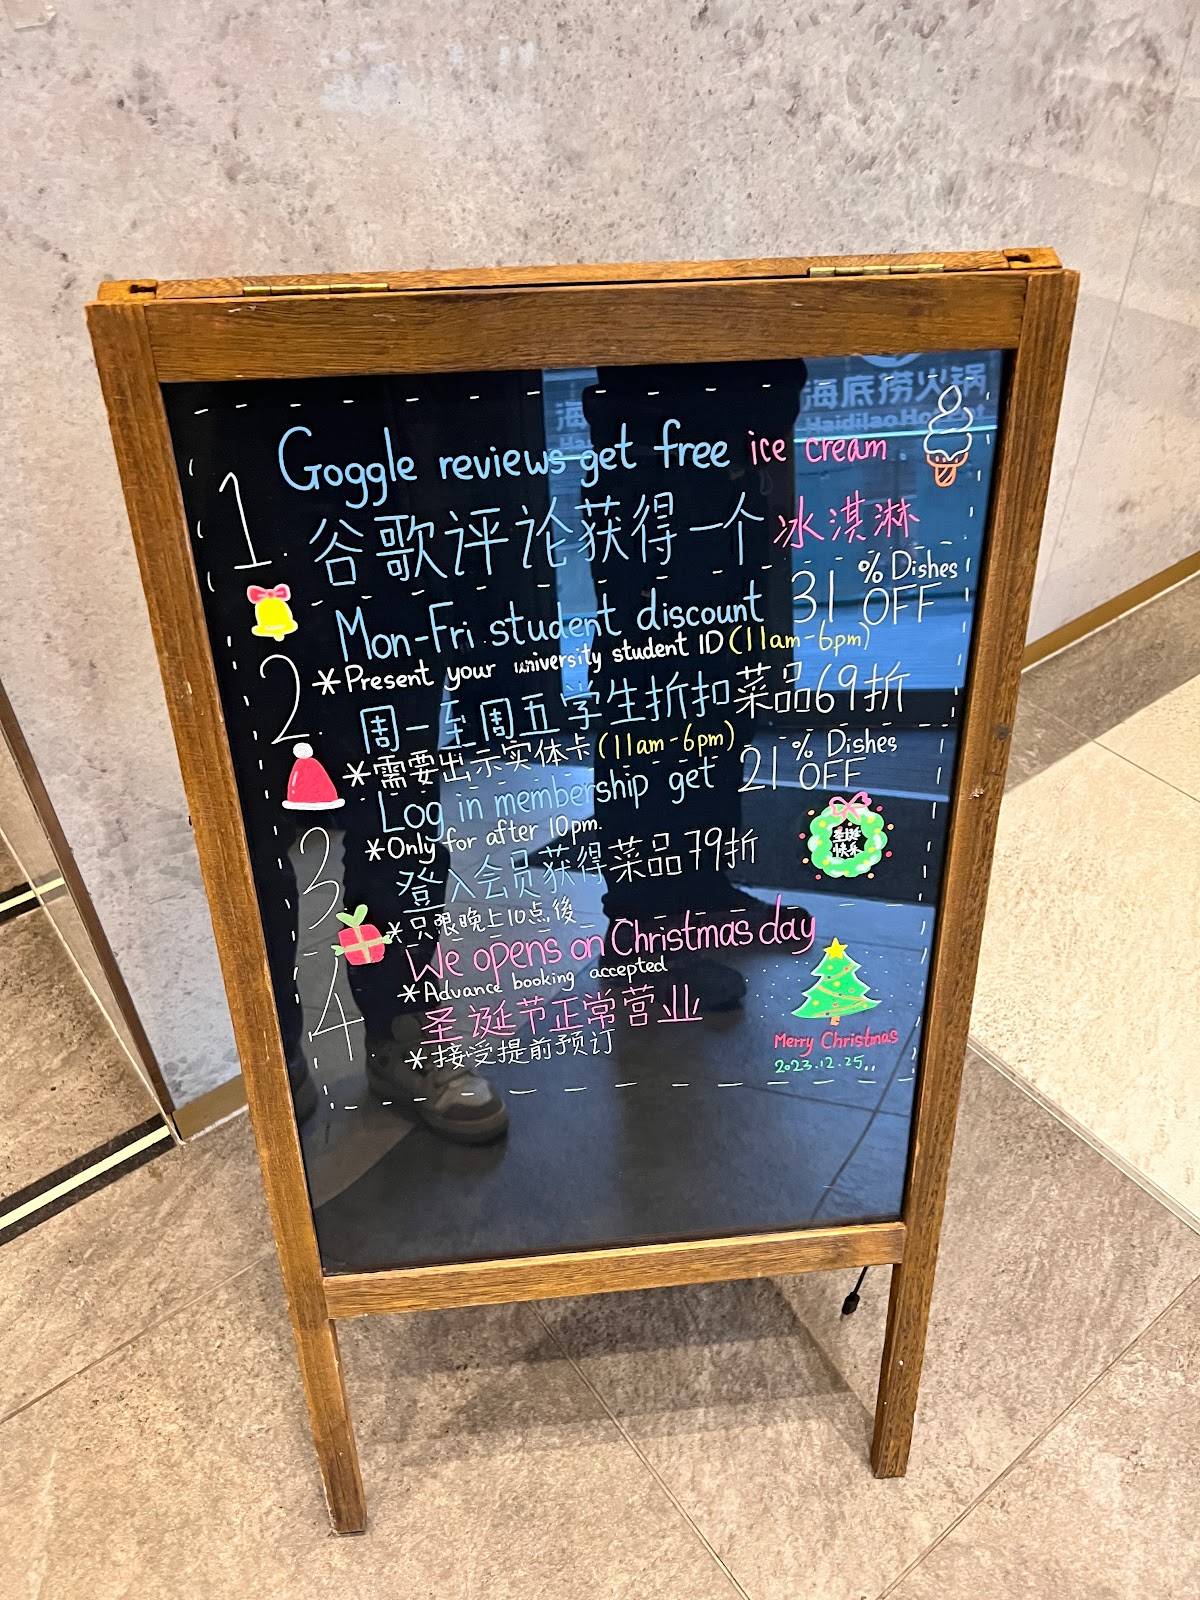 海底捞火锅
Haidilao Hotpot
1. Goggle reviews get free ice cream.
谷歌评论获得一个冰淇淋
2. Mon-Fri student discount 31% Dishes OFF
*Present your university student ID (11am-6pm)
周一至周五学生折扣菜品69折
*需要出示实体卡(11am-6pm)
3. Log in membership get 21% Dishes OFF
*Only for after 10pm.
登入会员获得菜品79折
*只限晚上10点後
圣诞
快乐
4. We opens on Christmas day
*Advance booking accepted
圣诞节正常营业
*接受提前预订
Merry Christmas
2023.12.25..